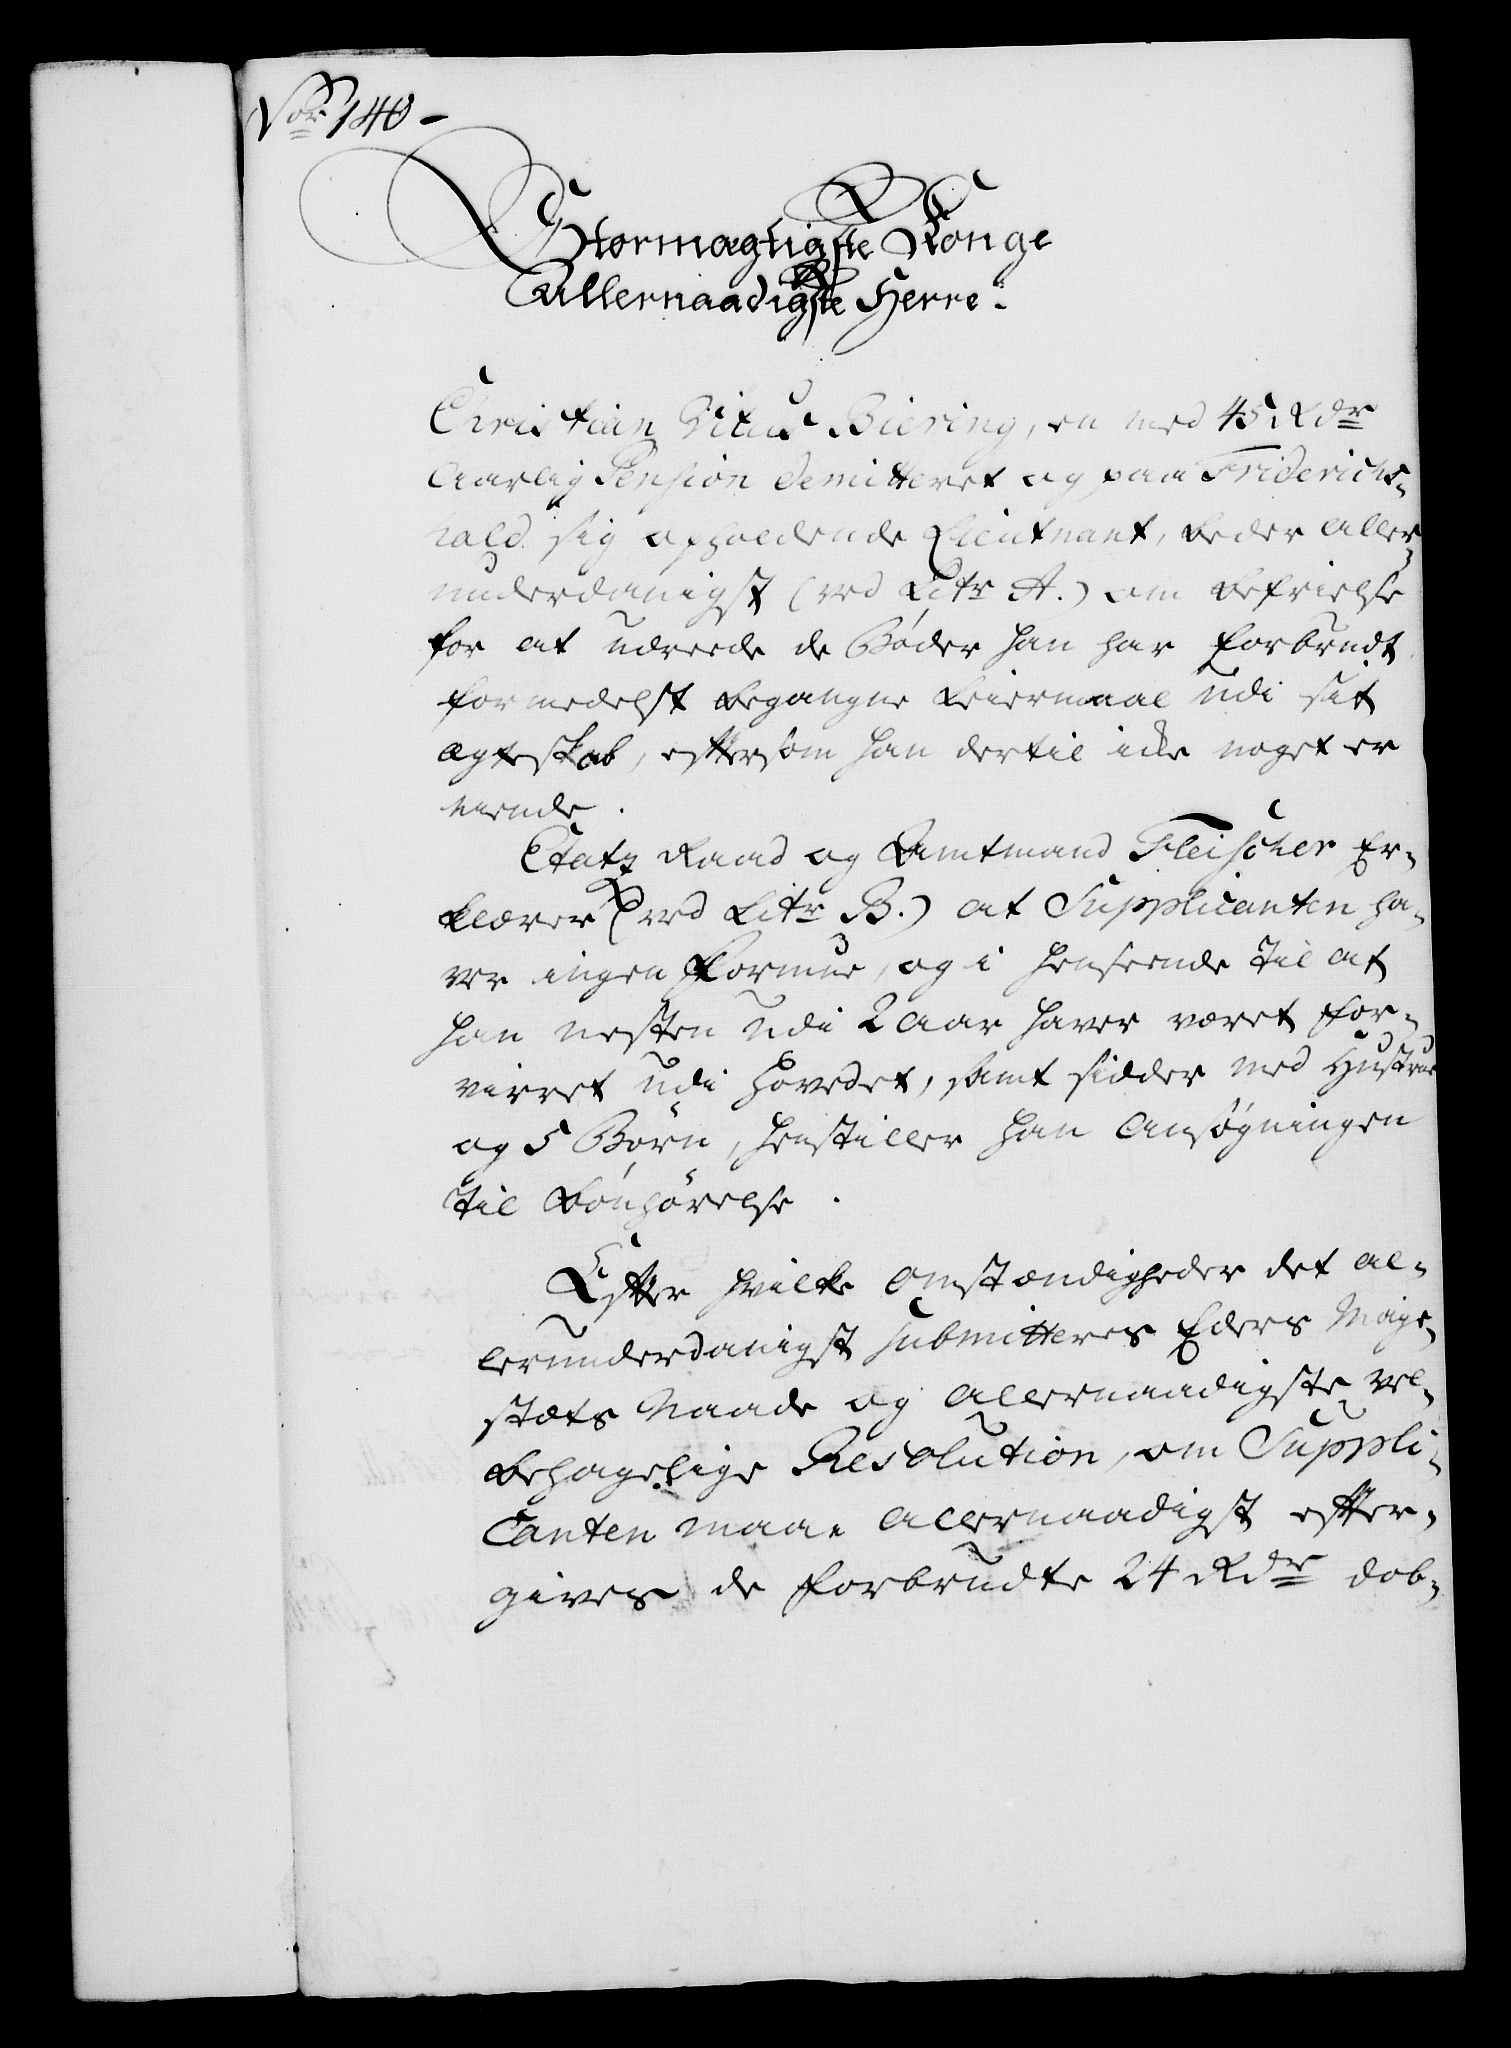 No: 140 -
Stormægtigste Konge
Allernaadigste Herre.
Christian Vitus Biering, en med 45 Rdr
aarlig Pension demitteret og paa Friderichs-
hald sig opholdende Lieutnant, beder aller-
underdanigst (ved Litr A.) om befrielse
for at udreede de Bøder han har forbrudt
formedelst begangne Leiermaal udi sit
ægteskab, eftersom han dertil icke noget er
eiende.
Etatz Raad og Amtmand Fleischer Er-
klærer (ved Litr B.) at Supplicanten ha-
ver ingen Formue, og i henseende til at
han nesten udi 2 aar haver været for-
virret udi hovedet, samt sidder med Hustrue
og 5 Børn, henstiller han Ansøgningen
til Bønhørelse.
Efter hvilke Omstændigheder det al-
lerunderdanigst submitteres Eders Maje-
stæts Naade og allernaadigste vel-
behagelige Resolution, om Suppli-
canten maae allernaadigst efter-
gives de forbrudte 24 Rdr dob-